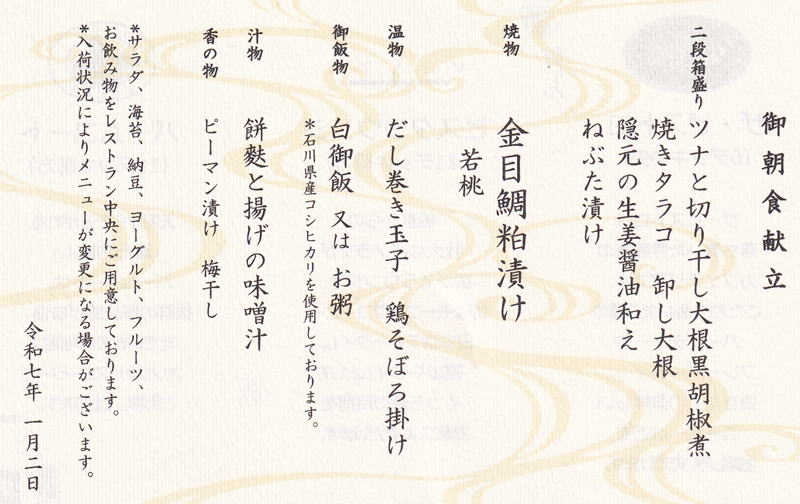 御朝食献立
二段箱盛り ツナと切り干し大根黒胡椒煮
焼きタラコ 卸し大根
隠元の生姜醤油和え
ねぶた漬け
焼物 金目鯛粕漬け
若桃
温物 だし巻き玉子 鶏そぼろ掛け
御飯物 白御飯 又は お粥
*石川県産コシヒカリを使用しております。
汁物 餅麩と揚げの味噌汁
香の物 ピーマン漬け 梅干し
*サラダ、海苔、納豆、ヨーグルト、フルーツ、
お飲み物をレストラン中央にご用意しております。
*入荷状況によりメニューが変更になる場合がございます。
令和七年 一月二日